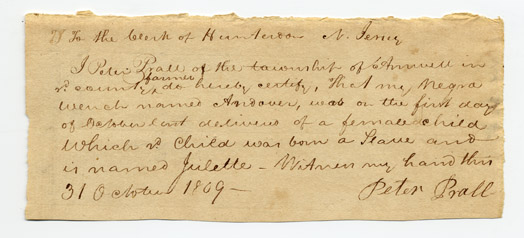 To the Clerk of Hunterdon N. Jersey
I Peter Prall of the township of Amwell in
sd. county, farmer do hereby certify, That my Negra
wench named Andover, was on the first day
of October last delivered of a female child
Which sd. Child was born a Slave and
is named Julette - Witness my hand this
31 October 1809 -
Peter Prall